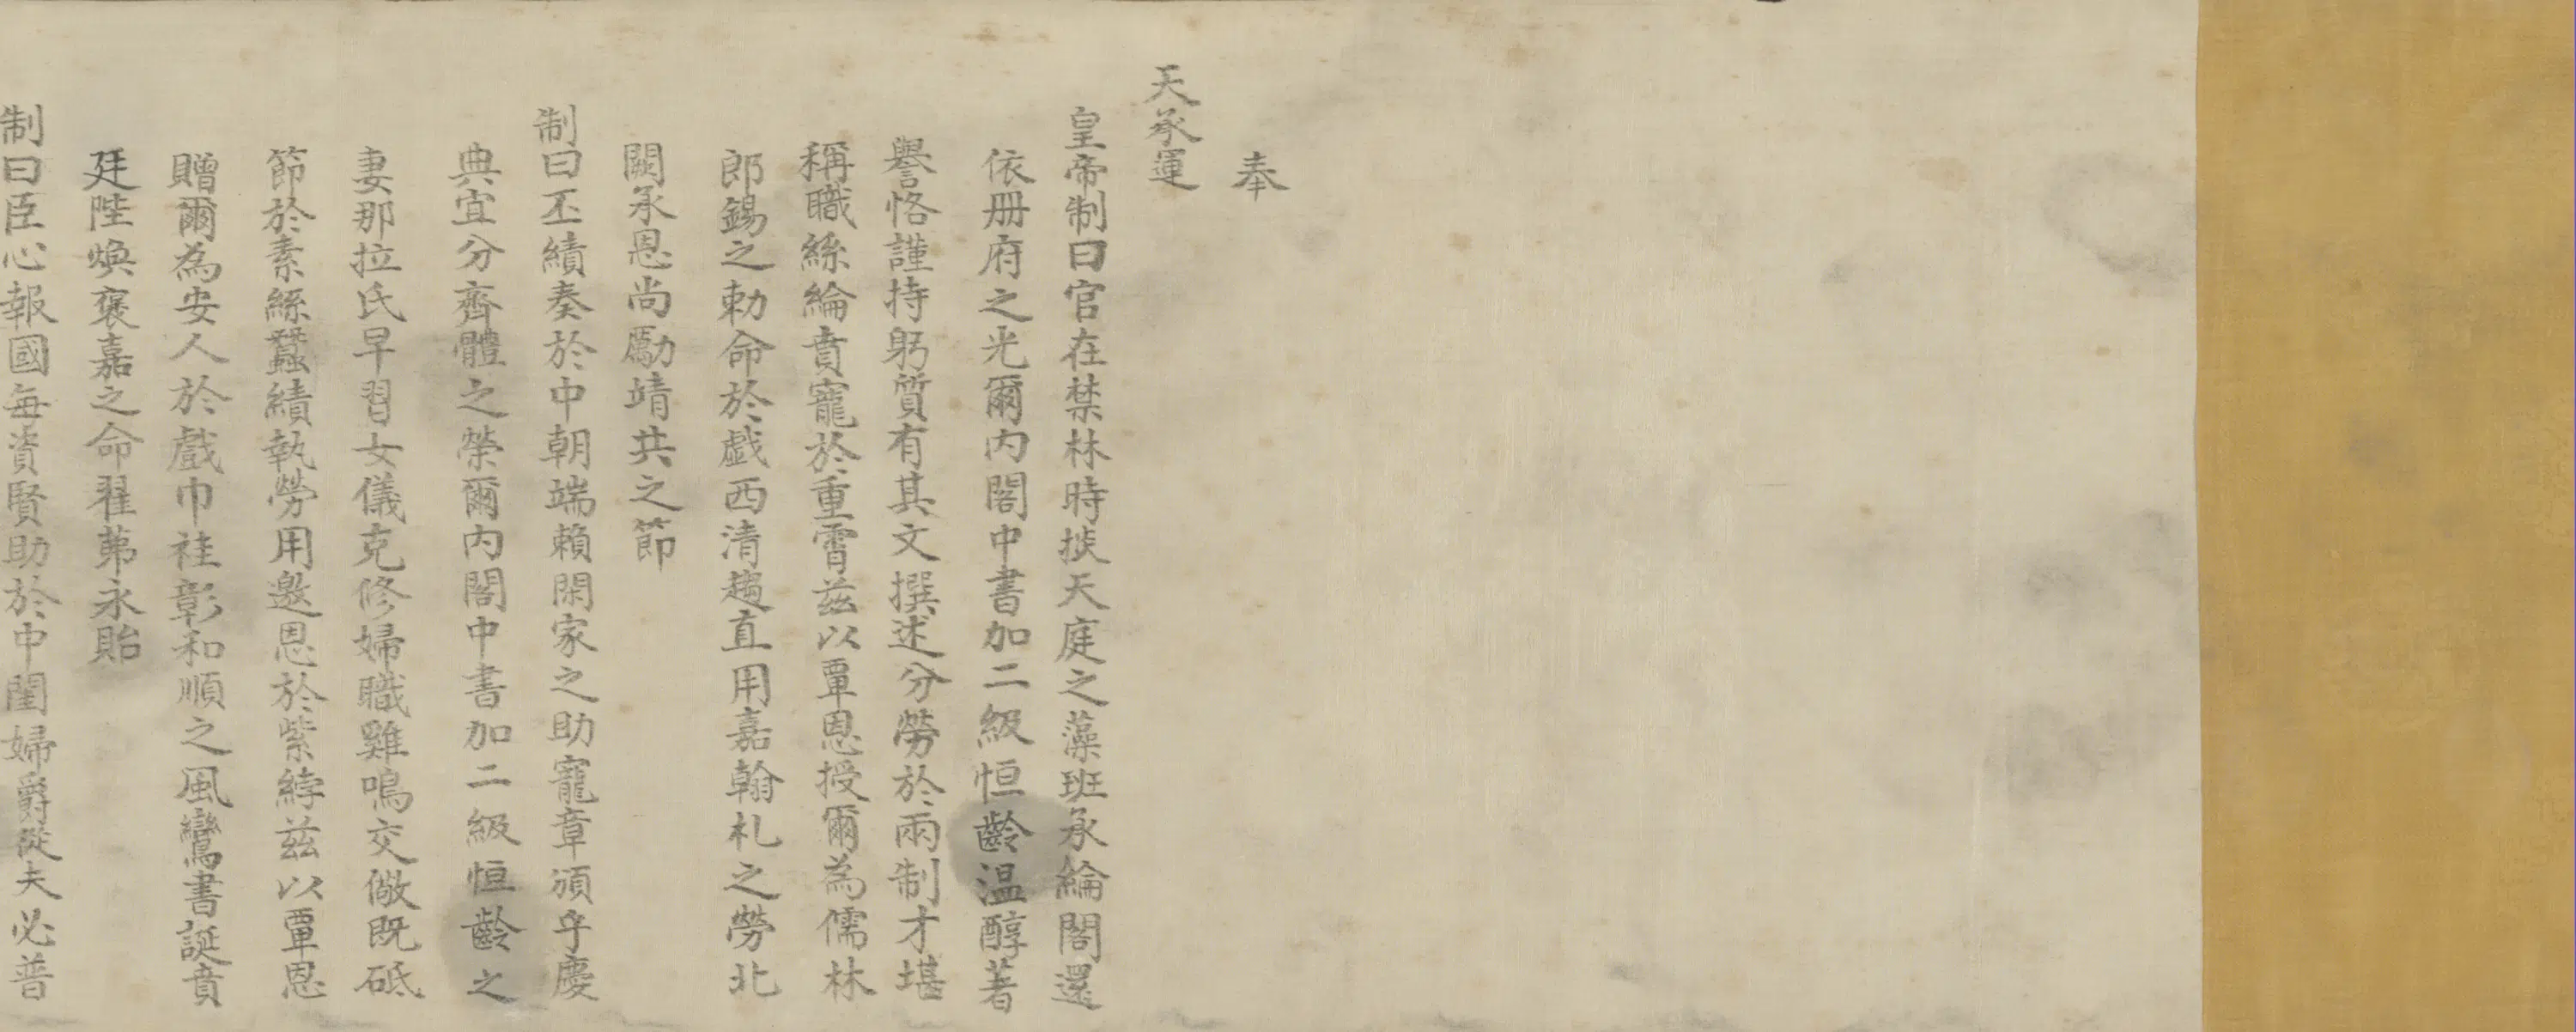 奉
天承運
皇帝制曰官在禁林時掞天庭之藻班承綸閣還
依册府之光爾内閣中書加二級恒齡温醇著
譽恪謹持躬質有其文撰述分勞於兩制才堪
稱職絲綸賁寵於重霄茲以覃恩授爾為儒林
郎錫之勅命於戲西清趨直用嘉翰札之勞北
闕承恩尚勵靖共之節
制曰丕績奏於中朝端賴閑家之助寵章頒乎慶
典宜分齊體之榮爾内閣中書加二級恒齡之
妻那拉氏早習女儀克修婦職雞鳴交儆既砥
節於素絲蠶績執勞用邀恩於紫綍茲以覃恩
贈爾為安人於戲巾袿彰和順之風鸞書誕賁
廷陛煥褒嘉之命翟茀永貽
制曰臣心報國每資賢助於中閨婦爵從夫必普